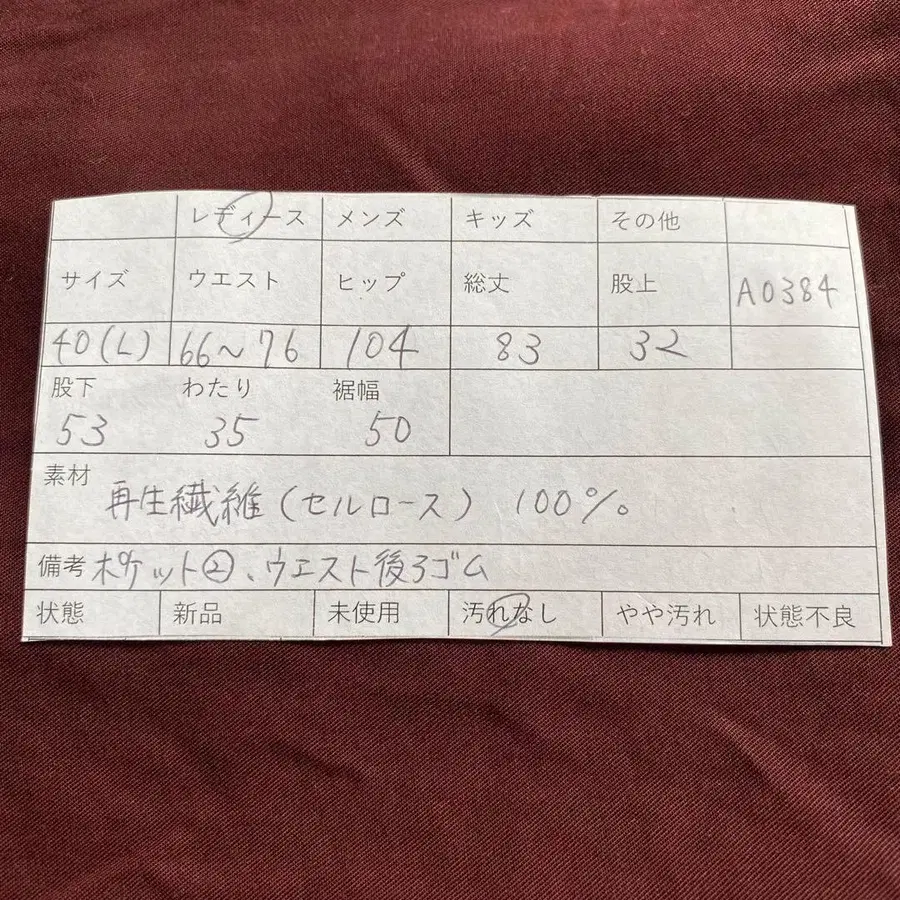 レディース メンズ キッズ その他
サイズ ウエスト ヒップ 総丈 股上 A0384
40(L) 66~76 104 83 32
股下 わたり 裾幅
53 35 50
素材 再生繊維(セルロース) 100%。
備考 ポケット②、ウエスト後ろゴム
状態 新品 未使用 汚れなし やや汚れ 状態不良